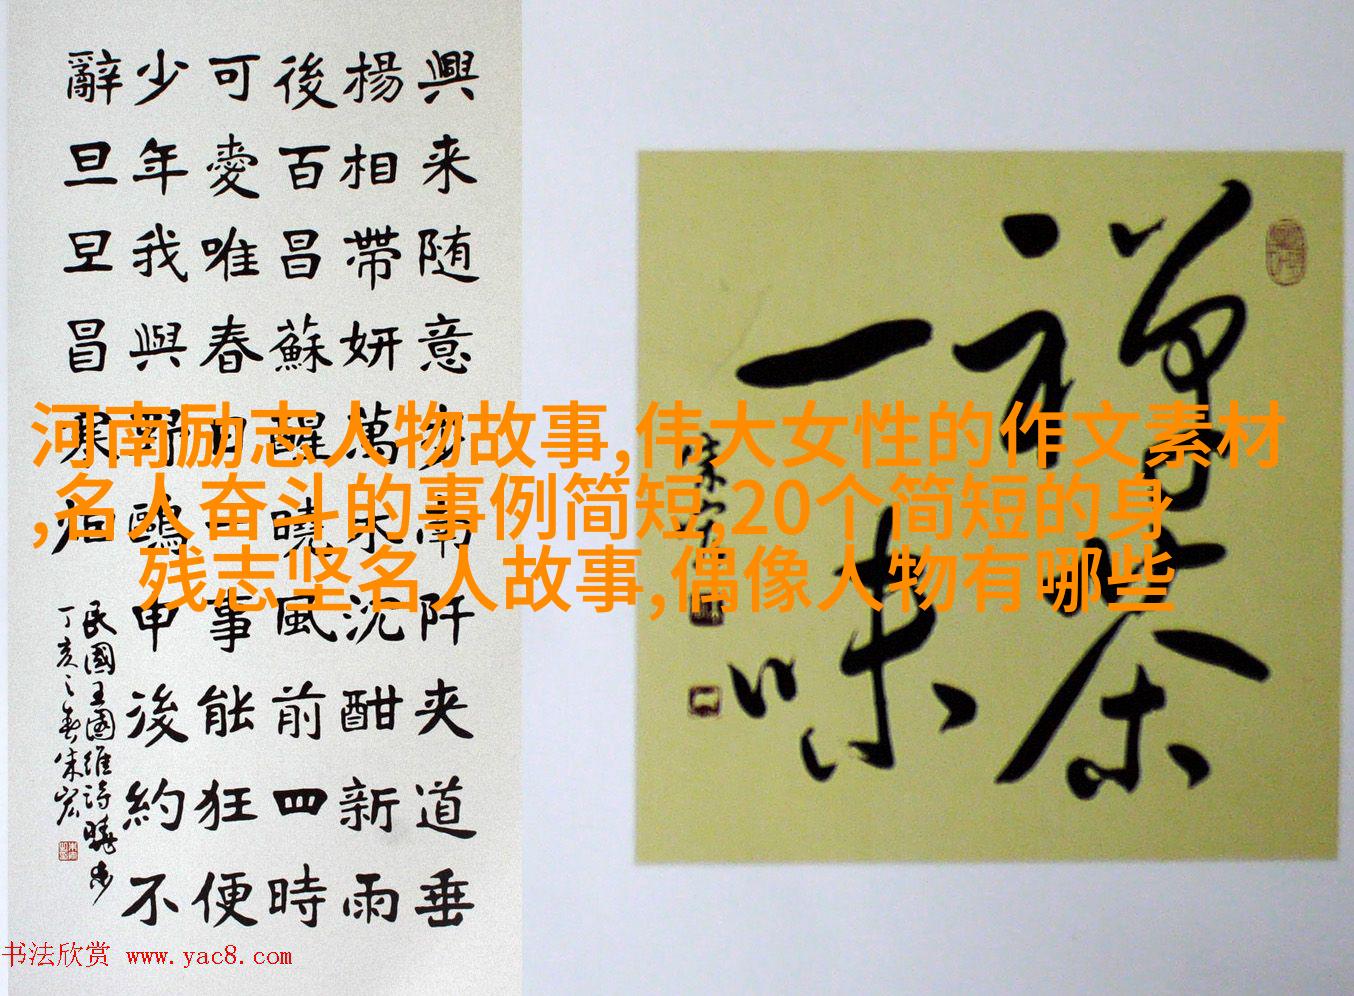 興来随意步南阡夹道垂
楊相帶妍萬木沈酣新雨
後百昌蘇醒曉風前四時
可愛唯春日一事能狂便
少年我與野鷗申後約不
辭旦旦冒寒烟
民國王國維詩曉步
丁亥之春朱宏
禅茶
一味
河南励志人物故事,伟大女性的作文素材
,名人奋斗的事例简短,20个简短的身
残志坚名人故事,偶像人物有哪些
书法欣赏 www.yac8.com